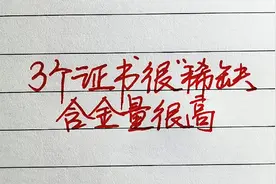 3个证书很"稀缺
含金量很高